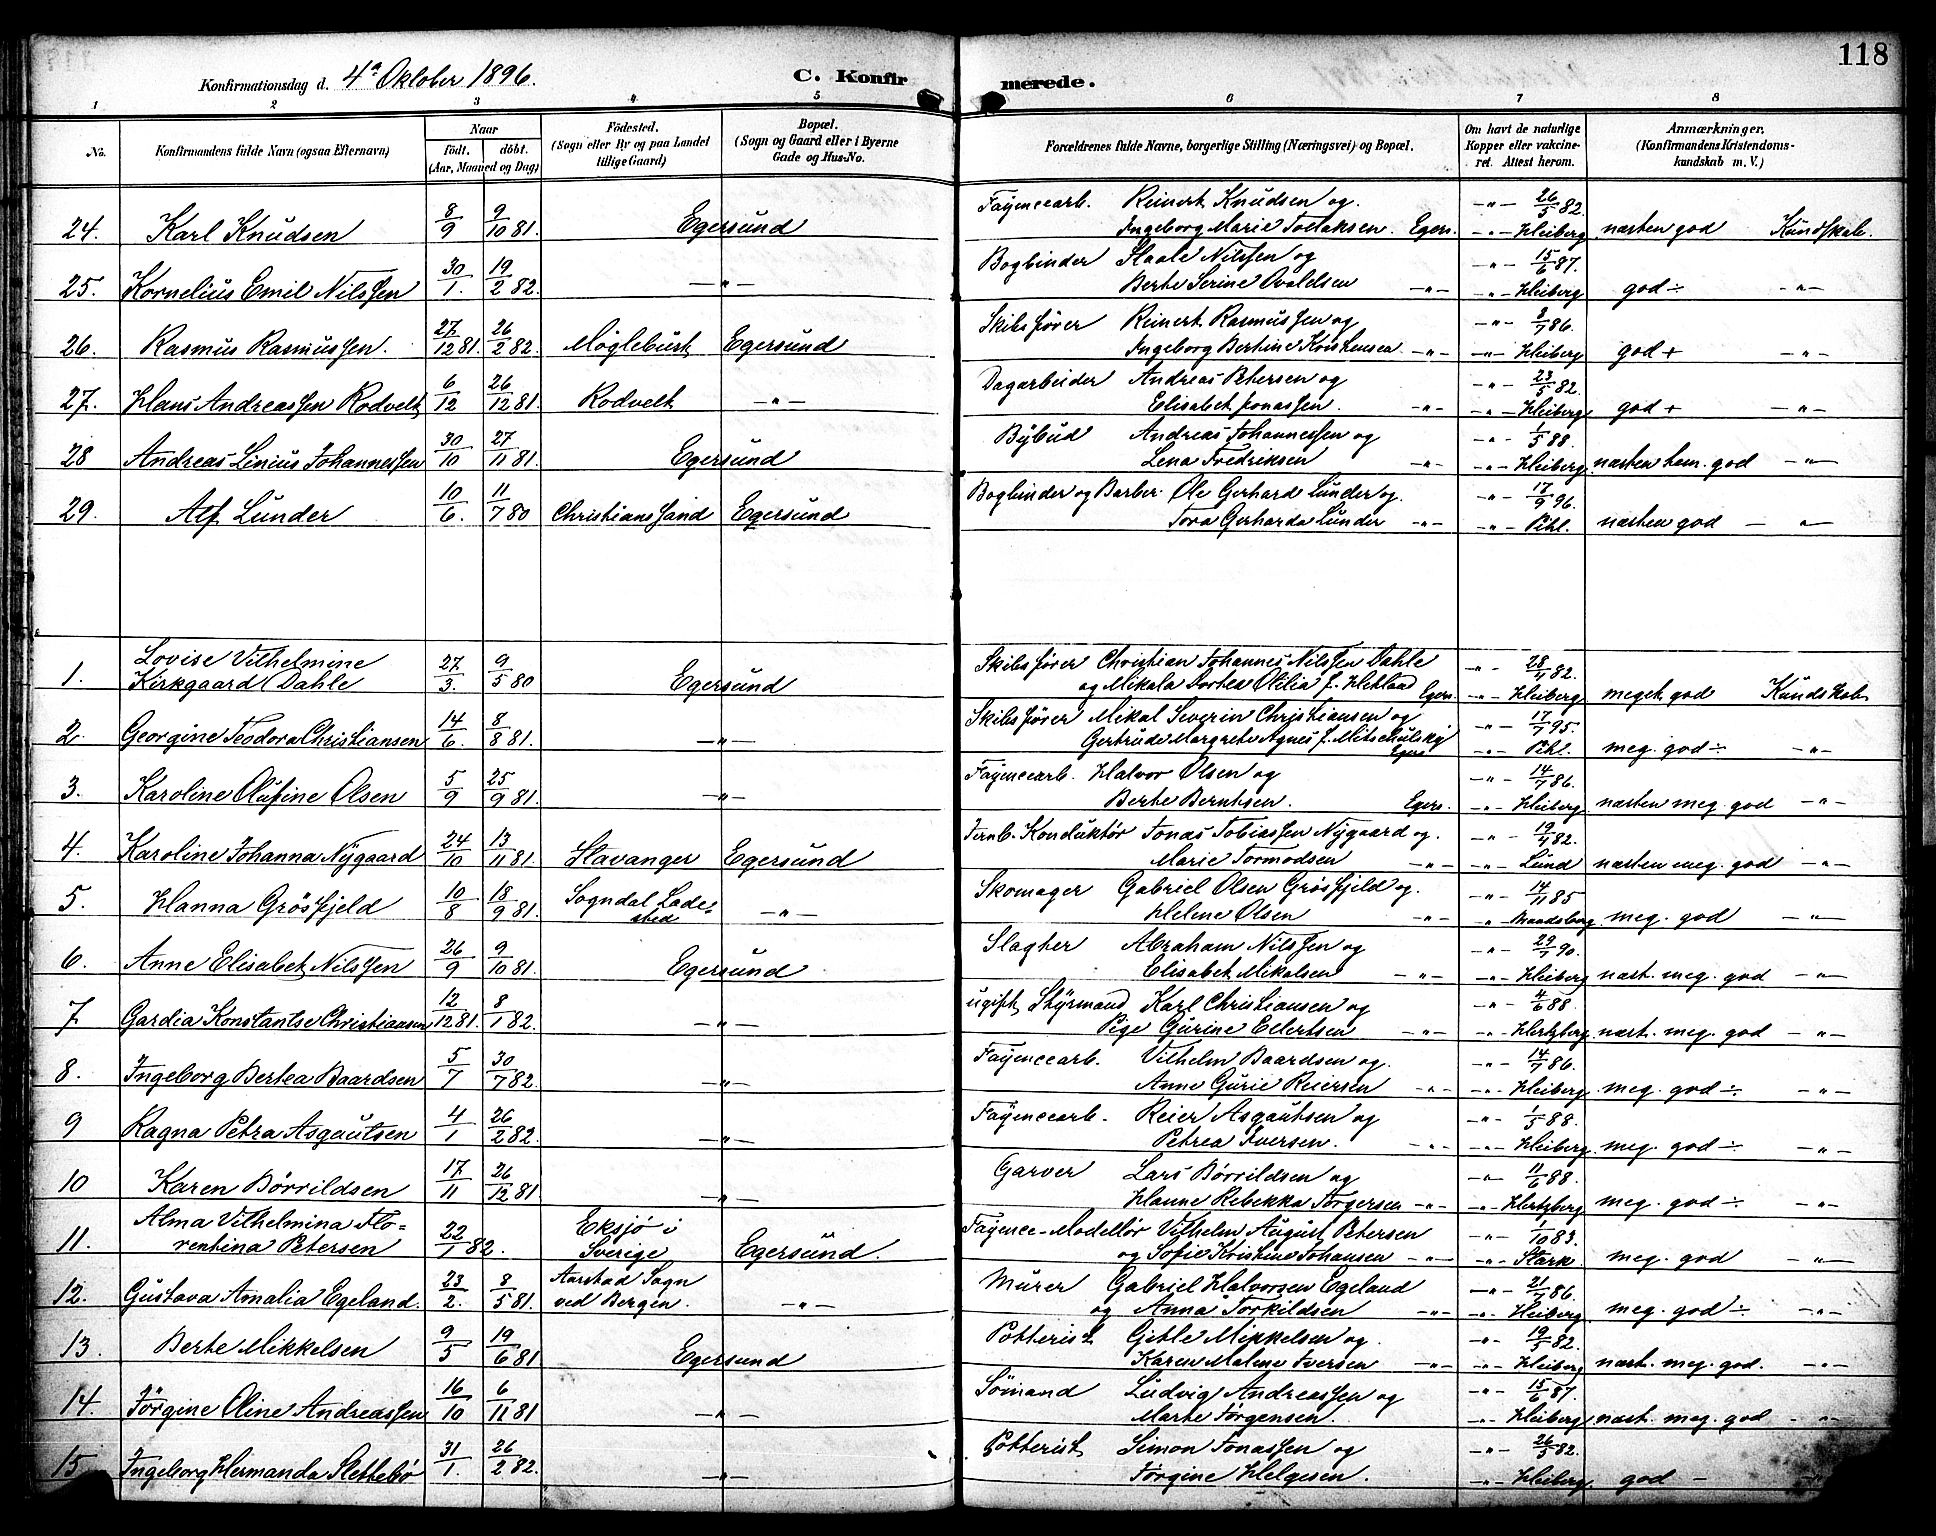 118
Konfirmationsdag d. 4de Oktober 1896. C. Konfirmerede.
1 2 3 4 5 6 7 8
No. Konfirmandens fulde Navn (ogsaa Efternavn) Naar födt. döbt. (Aar, Maaned og Dag) Födested. (Sogn eller By og paa Landet tillige Gaard) Bopæl. (Sogn og Gaard eller i Byerne Gade og Hus-No. Forældrenes fulde Navne, borgerlige Stilling (Næringsvei) og Bopæl. Om havt de naturlige Kopper eller vakcineret. Attest herom. Anmærkninger. (Konfirmandens Kristendomskundskab m. V.)
24. Karl Knudsen 8/9 9/10 81. Egersund Fayencearb. Reinert Knudsen og Ingeborg Marie Torlaksen. Egers. -"- 26/5 82. -"- Heiberg næsten god Kundskab.
25. Kornelius Emil Nilssen 30/1. 19/2 82. -"- Bogbinder Staale Nilssen og Berte Serine Ovaldsen -"- -"- 15/6 87. -"- Heiberg god ÷ -"-
26. Rasmus Rasmussen. 27/12 81. 26/2 82. Mögleburst Egersund Skibsfører Reinert Rasmussen og Ingeborg Bertine Kristensen -"- -"- 8/7 86. -"- Heiberg god + -"-
27. Hans Andreassen Rodvelt 6/12 26/12 81. Rodvelt -"- Dagarbeider Andreas Petersen og Elisabet Jonassen. -"- -"- 23/5 82. -"- Heiberg god + -"-
28 Andreas Linius Johannessen 30/10 27/11 81. Egersund Bybud Andreas Johannessen og Lena Fredriksen -"- -"- 1/5 88. -"- Heiberg næsten tem. god -"-
29. Alf Lunder 10/6. 11/7 80 Christianssand Egersund Bogbinder og Barber. Ole Gerhard Lunder og Tora Gerharda Lunder -"- -"- 17/9 96. -"- Pihl. næsten god -"-
1. Lovise Vilhelmine Kirkgaard Dahle 27/3. 9/5 80 Egersund Skibsfører Christian Johannes Nilssen Dahle og Mikala Dortea Otilia f. Hetland Egers. -"- 28/4 82. -"- Heiberg meget god Kundskab
2. Georgine Teodora Christiansen 14/6. 8/8 81. -"- Skibsfører Mikal Severin Christiansen og Gertrude Margrete Agnes f. Mitschulsky Egers -"- 17/7 95. -"- Pihl. meg. god ÷ -"-
3. Karoline Olufine Olsen 5/9 25/9 81. -"- Fayencearb. Halvor Olsen og Berte Berntsen. Egers. -"- 14/7 86. -"- Heiberg næsten meg. god -"-
4. Karoline Johanna Nygaard 24/10 13/11 81. Stavanger Egersund Jernb. Konduktör Jonas Tobiassen Nygaard og Marie Tormodsen -"- -"- 19/4 82. -"- Lund næsten meg. god -"-
5. Hanna Grösfjeld 10/8 18/9 81. Sogndal Ladested -"- Skomager Gabriel Olsen Grösfjeld og Helene Olsen -"- -"- 14/11 85 -"- meg. god -"-
6. Anne Elisabet Nilssen 26/9 9/10 81. Egersund Slagter Abraham Nilssen og Elisabet Mikalsen -"- -"- 29/7 90. -"- Heiberg næst. meg. god -"-
7. Gardia Konstantse Christiansen 12/12 81. 8/1 82. -"- ugift Styrmand Karl Christiansen og Pige Gurine Eilertsen -"- -"- 4/6 88. -"- Hertzberg næst. meg. god -"-
8. Ingeborg Bertea Baardsen 5/7 30/7 82. -"- Fayencearb. Vilhelm Baardsen og Anne Gurie Reiersen -"- -"- 14/7 86. -"- Heiberg meg. god ÷ -"-
9 Ragna Petra Asgautsen 4/1 26/2 82. -"- Fayencearb. Reier Asgautsen og Petrea Iversen. -"- -"- 1/5 88. -"- Heiberg. meg. god ÷ -"-
10 Karen Börrildsen 17/11 26/12 81 -"- Garver Lars Börrildsen og Hanne Rebekka Torgersen -"- -"- 11/6 88. -"- Hertzberg meg. god ÷ -"-
11. Alma Vilhelmina Florentina Petersen 22/1 82. Eksjö i Sverige Egersund. Fayence-Modellör Vilhelm August Petersen og Sofie Kristine Johansen -"- -"- 1/10 83. -"- Stark. meg. god -"-
12. Gustava Amalia Egeland. 23/2. 8/5 81. Aarstad Sogn ved Bergen. -"- Murer Gabriel Halvorsen Egeland og Anna Torkildsen -"- -"- 21/7 86. -"- Heiberg meg. god ÷ -"-
13. Berte Mikkelsen 9/5 19/6 81 Egersund Potterist Gitle Mikkelsen og Karen Malene Iversen -"- -"- 19/5 82. -"- Heiberg næst. meg. god. -"-
14. Jörgine Oline Andreassen 16/10 6/11 81 -"- Sömand Ludvig Andreassen og Marte Jörgensen. -"- 15/6 87. -"- Heiberg næst. meg. god -"-
15. Ingeborg Hermanda Slettebö 31/1. 26/2 82. -"- Potterist Simon Jonassen og Jörgine Helgesen. -"- 26/5 82. -"- Heiberg god -